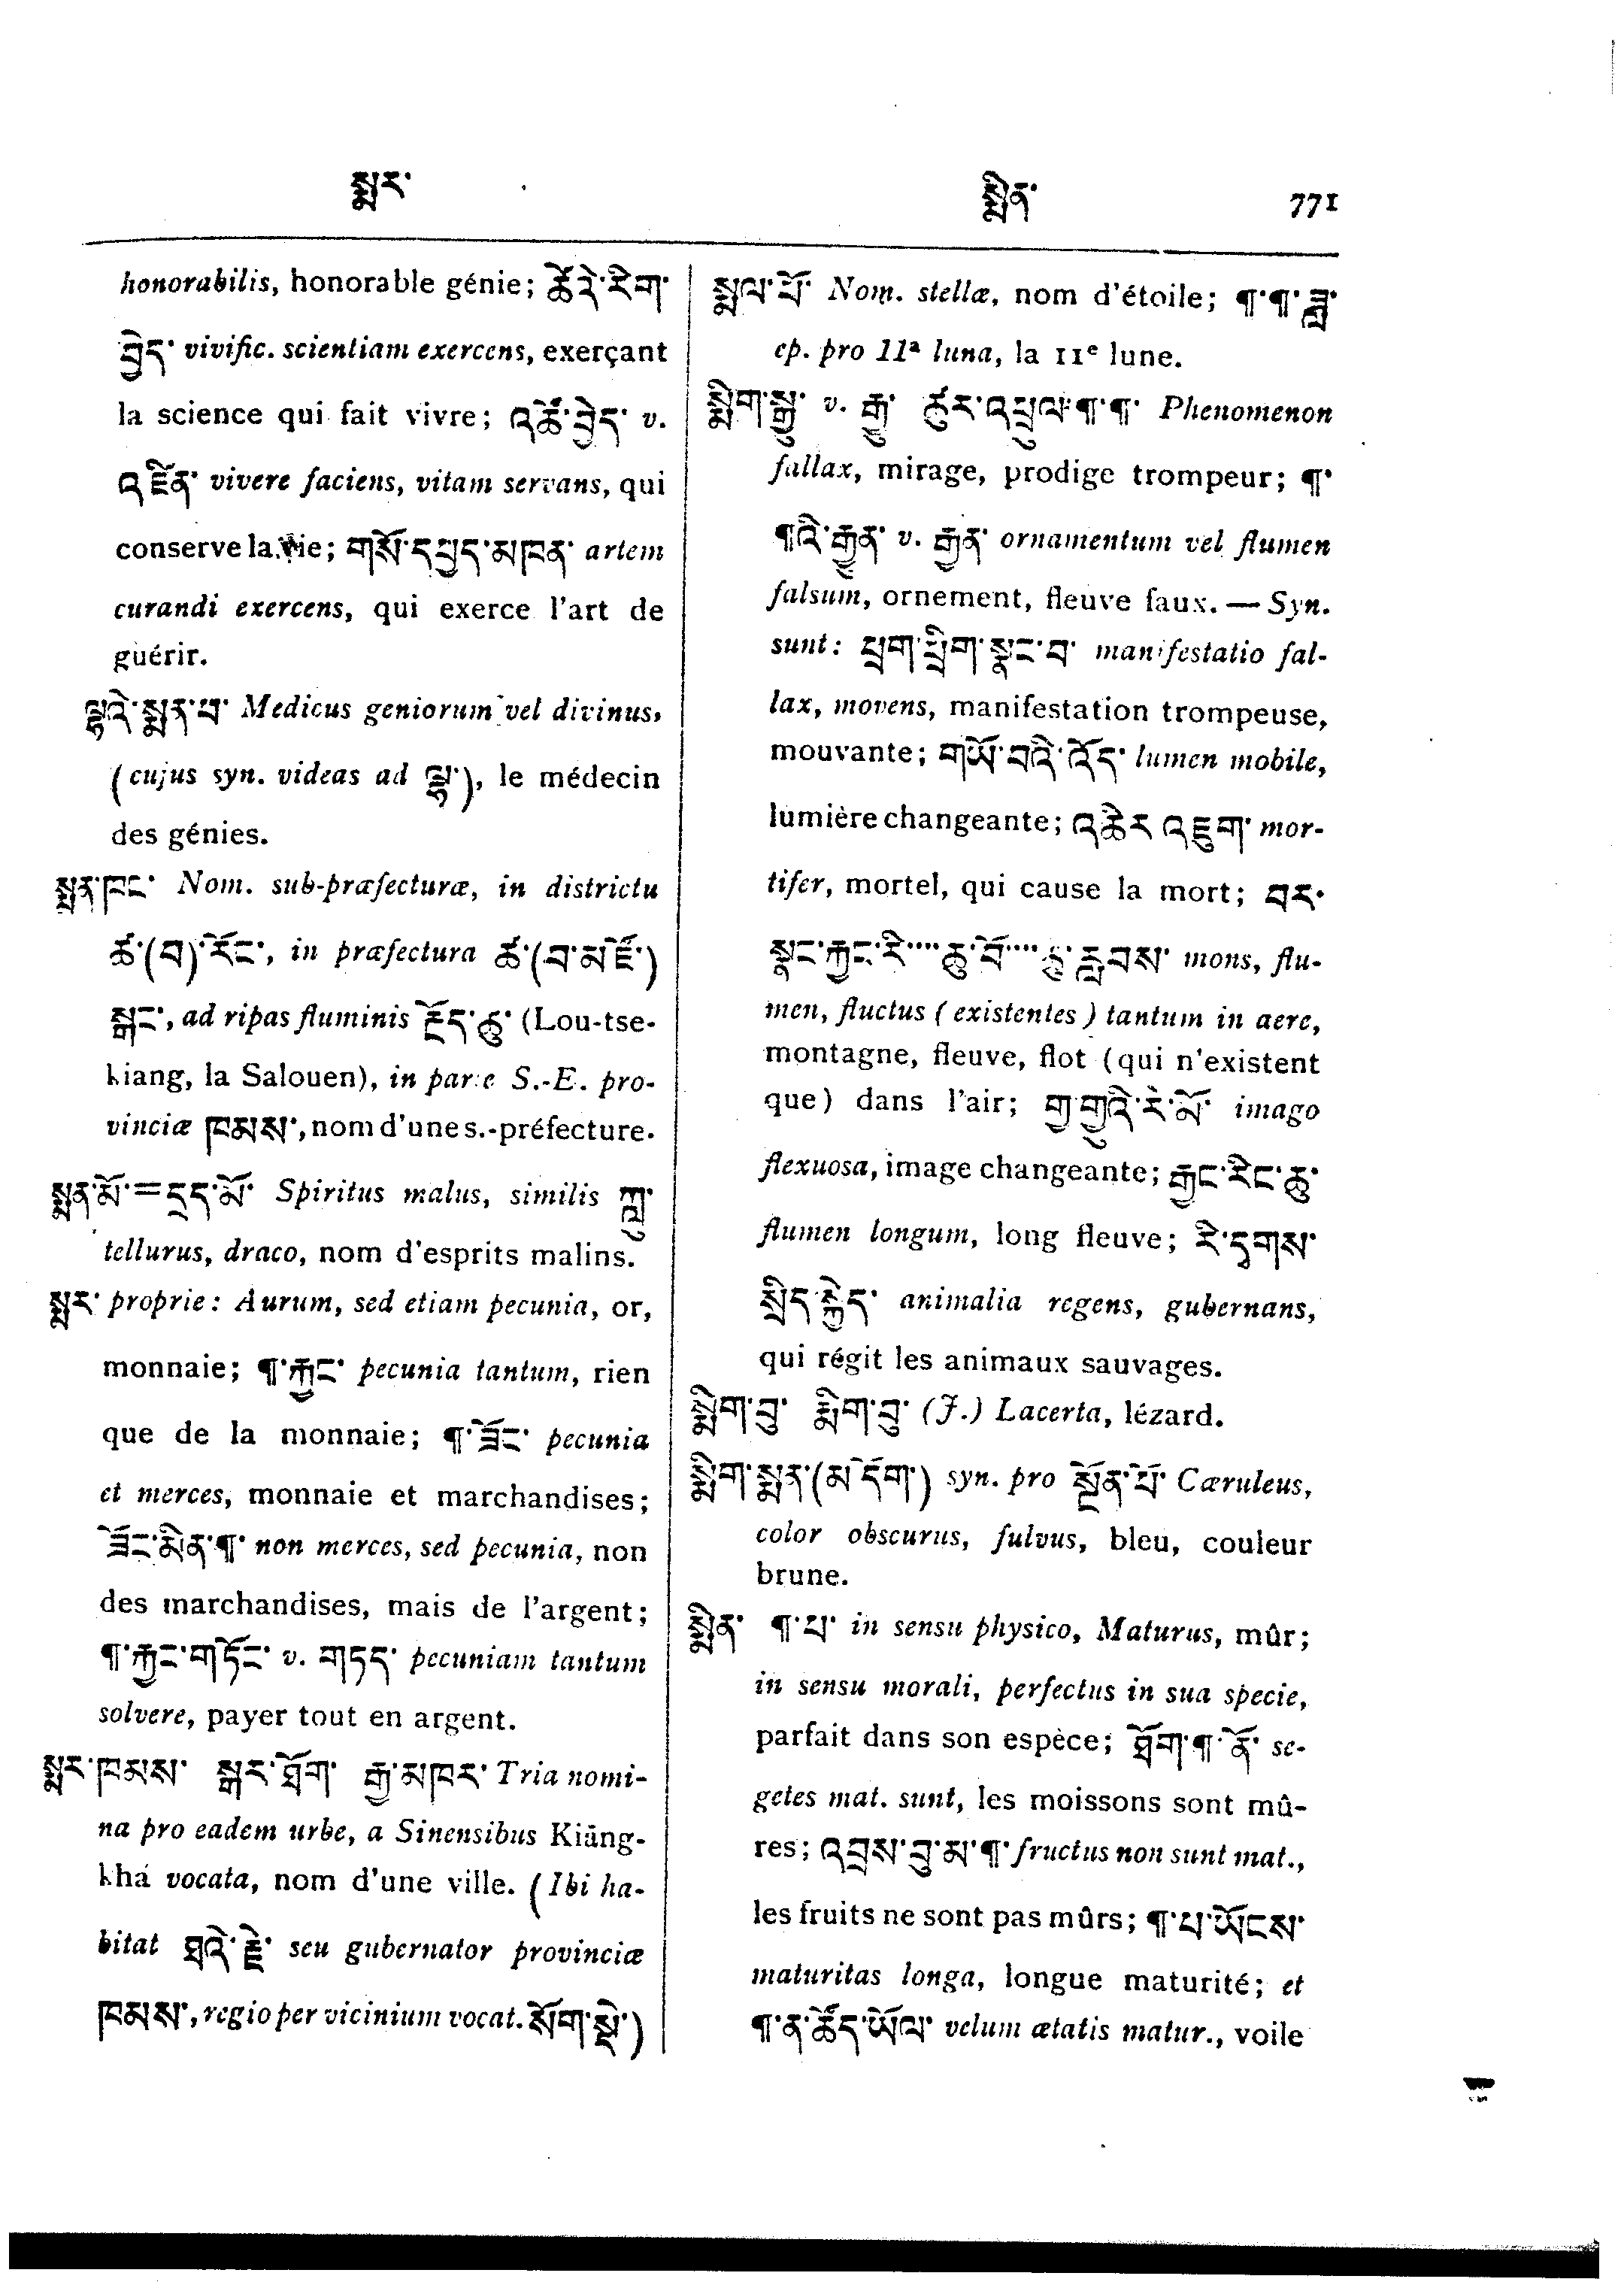 སྨར་
སྨིན་ 771
honorabilis, honorable génie; ཚོའི་རིག་
བྱེད་ vivific. scientiam exercens, exerçant
la science qui fait vivre; འཚོ་བྱེད་ v.
འཛིན་ vivere faciens, vitam servans, qui
conserve la vie; གསོ་དཔྱད་མཁན་ artem
curandi exercens, qui exerce l'art de
guérir.
ལྷའི་སྨན་པ་ Medicus geniorum vel divinus,
(cujus syn. videas ad ལྷ་), le médecin
des génies.
སྨན་ཁང་ Nom. sub-præfecturæ, in districtu
ཚ་(བ)་རོང་, in præfectura ཚ་(བ་མཛོ་)
སྒང་, ad ripas fluminis རྔོད་ཆུ་ (Lou-tse-
kiang, la Salouen), in parte S.-E. pro-
vinciæ ཁམས་, nom d'une s.-préfecture.
སྨན་མོ་=དྲད་མོ་ Spiritus malus, similis ཀླུ་
tellurus, draco, nom d'esprits malins.
སྨར་ proprie: Aurum, sed etiam pecunia, or,
monnaie; ¶་རྐྱང་ pecunia tantum, rien
que de la monnaie; ¶་ཟོང་ pecunia
et merces, monnaie et marchandises;
ཟོང་མིན་¶་ non merces, sed pecunia, non
des marchandises, mais de l'argent;
¶་རྐྱང་གཏོང་ v. གཏད་ pecuniam tantum
solvere, payer tout en argent.
སྨར་ཁམས་ སྒར་ཐོག་ རྒྱ་མཁར་ Tria nomi-
na pro eadem urbe, a Sinensibus Kiāng-
khá vocata, nom d'une ville. (Ibi ha-
bitat ཐའི་རྗེ་ seu gubernator provinciæ
ཁམས་, regio per vicinium vocat. སོག་སྡེ་)
སྨལ་པོ་ Nom. stellæ, nom d'étoile; ¶་¶་ཟླ་
ep. pro 11ª luna, la 11e lune.
སྨིག་སྒྱུ་ v. རྒྱུ་ ཚུར་འཕྲུལ་¶་¶་ Phenomenon
fallax, mirage, prodige trompeur; ¶་
¶འི་རྒྱུན་ v. རྒྱན་ ornamentum vel flumen
falsum, ornement, fleuve faux. — Syn.
sunt: ཕྲག་ཕྲིག་སྣང་བ་ manifestatio fal-
lax, movens, manifestation trompeuse,
mouvante; གཡོ་བའི་འོད་ lumen mobile,
lumière changeante; འཆེར འཇུག་ mor-
tifer, mortel, qui cause la mort; བར་
སྣང་རྐྱང་རི་···ཆུ་བོ་··· རླབས་ mons, flu-
men, fluctus (existentes) tantum in aere,
montagne, fleuve, flot (qui n'existent
que) dans l'air; གྱ་གྱུའི་རི་མོ་ imago
flexuosa, image changeante; རྒྱང་རིང་ཆུ་
flumen longum, long fleuve; རི་དྭགས་
སྲིད་རྐྱེད་ animalia regens, gubernans,
qui régit les animaux sauvages.
སྨིག་བུ་ རྨིག་བུ་ (J.) Lacerta, lézard.
སྨིག་སྨན་(མདོག་) syn. pro སྔོན་པོ་ Cæruleus,
color obscurus, fulvus, bleu, couleur
brune.
སྨིན་ ¶་པ་ in sensu physico, Maturus, mûr;
in sensu morali, perfectus in sua specie,
parfait dans son espèce; ཐོག་¶་ནོ་ se-
getes mat. sunt, les moissons sont mû-
res; འབྲས་བུ་མ་¶་ fructus non sunt mat.,
les fruits ne sont pas mûrs; ¶་པ་ཡོངས་
maturitas longa, longue maturité; et
¶་ན་ཚོད་ཡོལ་ velum ætatis matur., voile